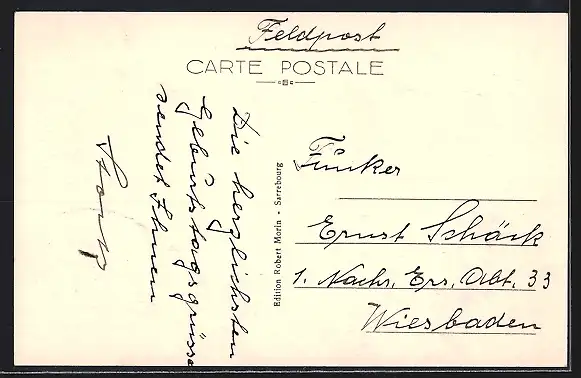 Feldpost
CARTE POSTALE
Die herzlichsten
Geburtstagsgrüsse
sendet Ihnen
Edition Robert Morin - Sarrebourg
Funker
Ernst Schäck
1. Nachr. Ers. Abt. 33
Wiesbaden